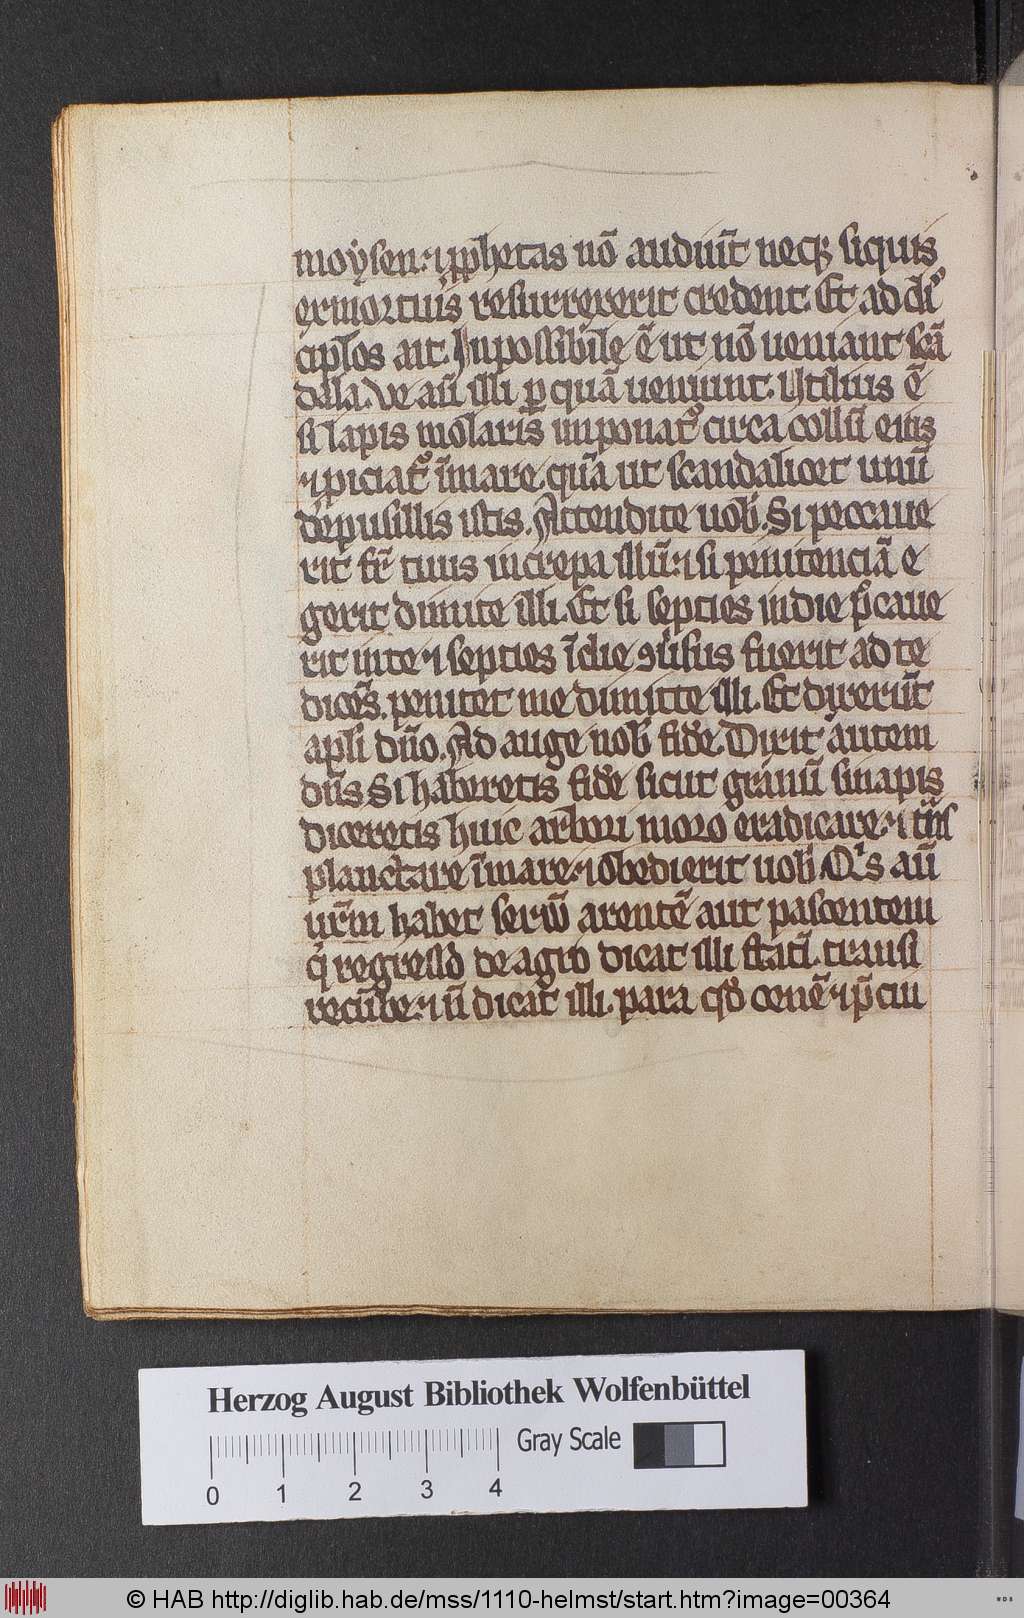 moysen. ⁊ ꝓphetas nō audiūt neqꝫ si quis
ex mortuis resurrexerit credent. Et ad diˢ
ciplos ait. Inpossibile ē ut nō ueniant scā
dala. Ve aū illi ꝑ quā ueniunt. Utilius ē
si lapis molaris inponatᷣ circa collū eius
⁊ ꝓiciatᷣ ī mare. quā ut scandalicet unū
de pusillis istis. Attendite uob̄. Si peccaue
rit fr̄ tuus increpa illū. ⁊ si penitenciā e
gerit dimitte illi. Et si septies in die peccaue
rit in te ⁊ septies ī die ꝯu̓sus fuerit ad te
dicēs. penitet me dimitte illi. Et dixerūt
apl̄i dn̄o. Ad auge nob̄ fidē. Dixit autem
dn̄s Si haberetis fidē sicut granū sinapis
diceretis huic arbori moro eradicare. ⁊ tn̄s
planctare ī mare. ⁊ obedierit uob̄. Qͥs aū
ur̄m habet seruū arentē aut pascentem
qͥ regresso de agro dicat illi statī. transi
recūbe. ⁊ n̄ dicat illi. para qd̄ cenē ⁊ p̄cin
Herzog August Bibliothek Wolfenbüttel
Gray Scale
0 1 2 3 4
© HAB http://diglib.hab.de/mss/1110-helmst/start.htm?image=00364